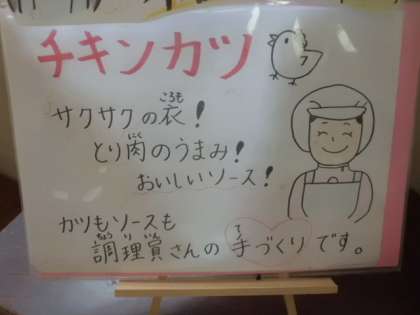 チキンカツ
サクサクの衣！
とり肉のうまみ！
おいしいソース！
カツもソースも
調理員さんの手づくりです。